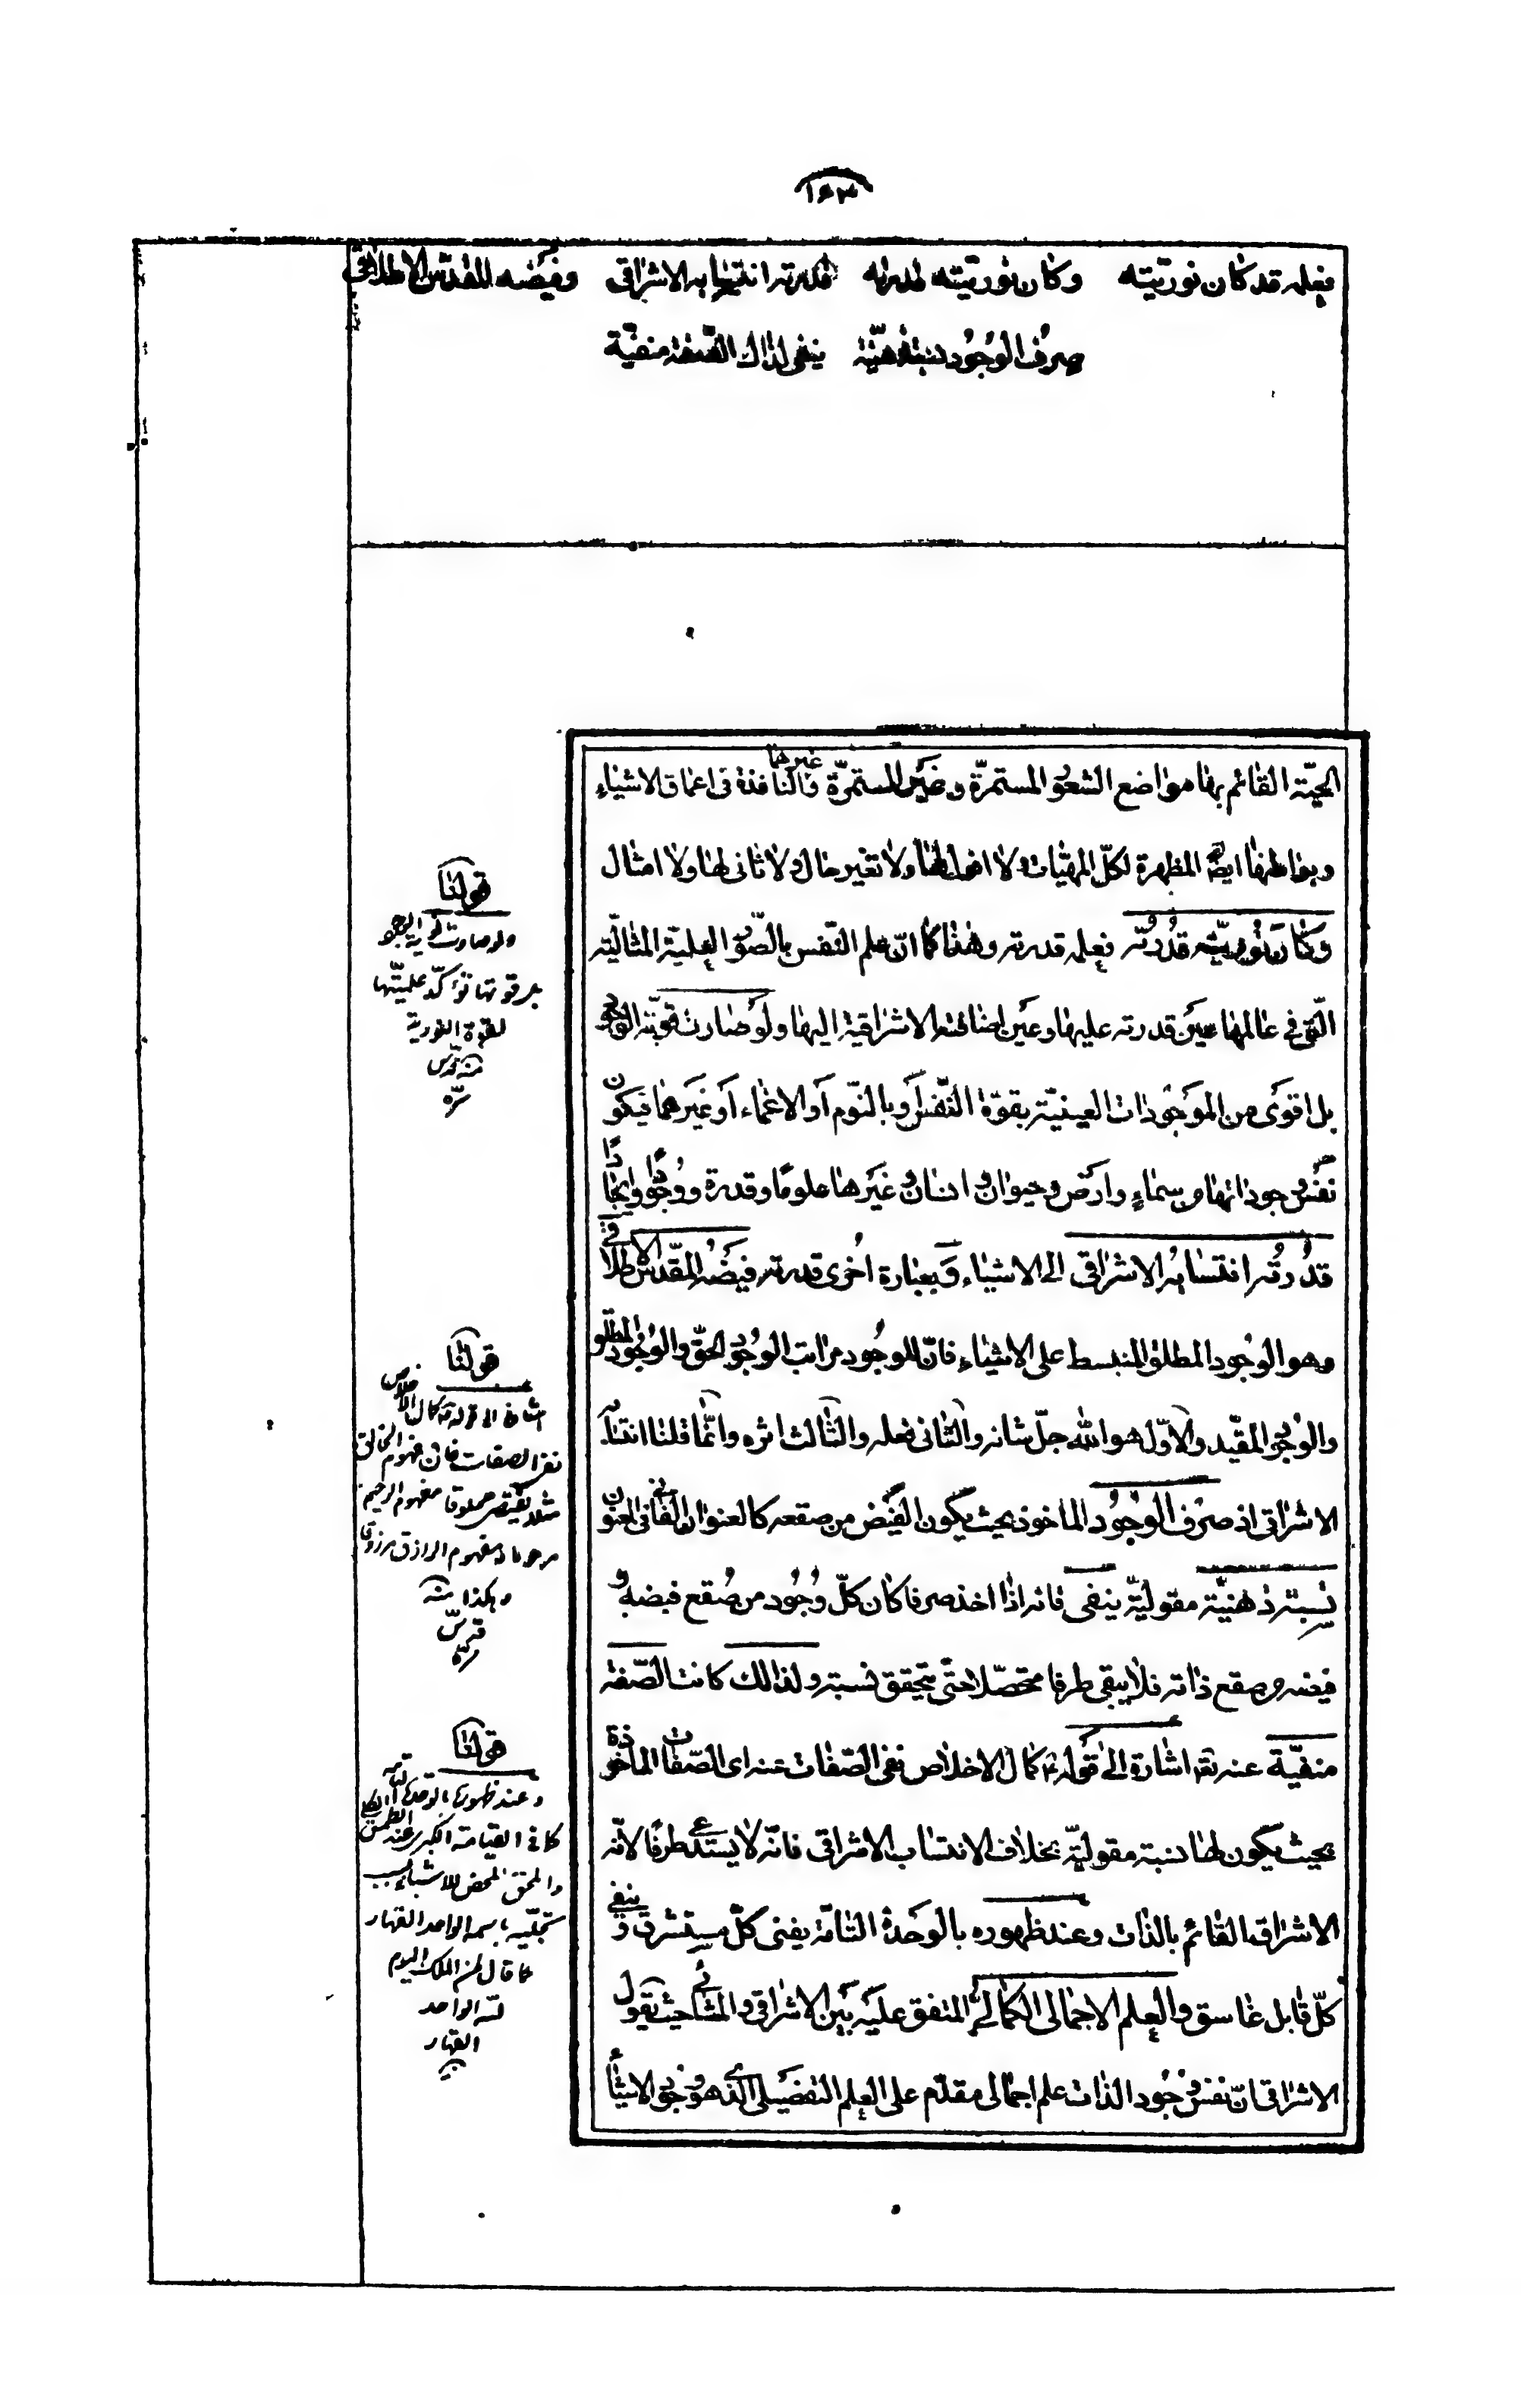 ١٦٣
فعله قد كان نوريّته وكان نوريّته قدرته قدرته انتسابه الاشراقى وفيضه المقدّس الاطلاقى
صرف الوجود نسبة ذهنيّة ينفى لذاك الصفة منفيّة
الحيّة القائم بها مواضع الشعو المستمرّة وغير المستمرّة وغيرهما النافذة فى اعماق الاشياء
وبواطنها ايضا المظهرة لكلّ المهيّات ولا افول لها ولا تغير حال ولا ثانى لها ولا امثال
وكان نوريّته قدرته فعلمه قدرته وهذا كما انّ علم النّفس بالصّور العلمية المثاليّة
الّتى فى عالمها عين قدرته عليها وعين اضافته الاشراقية اليها ولو صارت قويّة الوجود
بل اقوى من الموجودات العينيّة بقوّة النّفس او بالنّوم او الاغماء او غيرهما فيكون
نفس وجوداتها من سماء وارض وحيوان وانسان وغيرها علوما وقدرة ووجودا وايجادا
قدرته انتسابه الاشراقى الى الاشياء وبعبارة اخرى قدرته فيضه المقدّس الاطلاقى
وهو الوجود المطلق المنبسط على الاشياء فانّ للوجود مراتب الوجود الحقّ والوجود المطلق
والوجود المقيّد والاوّل هو الله جلّ شانه والثانى فعله والثالث اثره وانّما قلنا انتسابه
الاشراقى اذ صرف الوجود الماخوذ بحيث يكون الفيض من صقعه كالعنوان الفانى فى المعنون
نسبة ذهنيّة مقوليّة ينفى فانه اذا اخذ صرفا كان كلّ وجود من صقع فيضه و
فيضه من صقع ذاته فلا يبقى طرفا متحصّلا حتّى يتحقق نسبة ولذالك كانت الصّفة
منفيّة عنه تعه اشارة الى قوله ع كمال الاخلاص نفى الصّفات عنه اى الصّفات الماخوذة
بحيث يكون لها نسبة مقوليّة بخلاف الانتساب الاشراقى فانّه لا يستدعى طرفا لانّه
الاشراق القائم بالذات وعند ظهوره بالوحدة التامّة يفنى كلّ مستشرق وينفى
كلّ قابل غاسق والعلم الاجمالى الكمالى المتفق عليه بين الاشراقى والمشائى حيث يقول
الاشراقى انّ نفس وجود الذات علم اجمالى مقدّم على العلم التفصيلى الّذى هو وجود الاشياء
قولنا
ولو صارت قوية الوجود
بل قوتها تؤكّد علميّتها
لقوة النورية
منه قدّس
سرّه
قولنا
اشارة الى قوله ع كمال الاخلاص
نفى الصفات فان مفهوم الخالق
مثلا يقتضى مخلوقا مفهوم الرحيم
مرحوما ومفهوم الرازق مرزوقا
وهكذا منه
قدسّ
سره
قولنا
وعند ظهوره بالوحدة التامة
كما فى القيامة الكبرى عند الطمس الكلى
والمحق المحض للاشياء بسبب
تجلّيه باسمه الواحد القهار
كما قال لمن الملك اليوم
لله الواحد
القهار